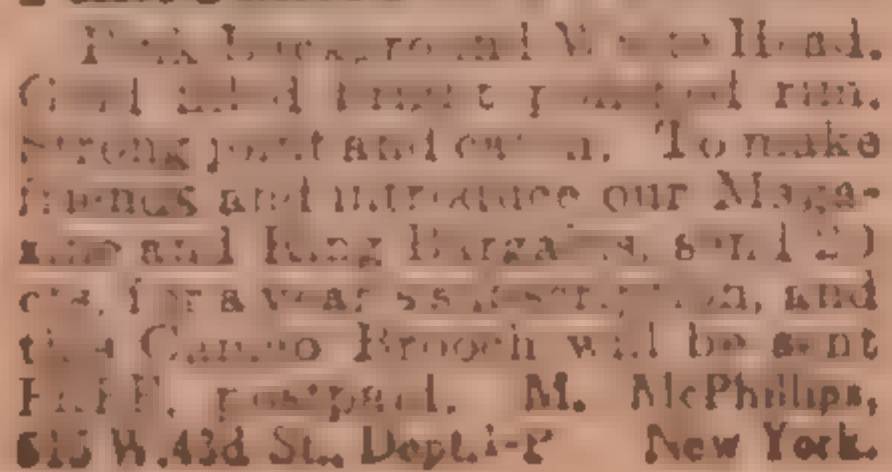 Pink background White Head.
Gold filled
strong joint and catch. To make
friends and introduce our Maga-
zine and Ring Bargains, send 20
cts. for a year's subscription, and
this Cameo Brooch will be sent
FREE, postpaid. M. McPhillips,
615 W. 43d St., Dept. New York.